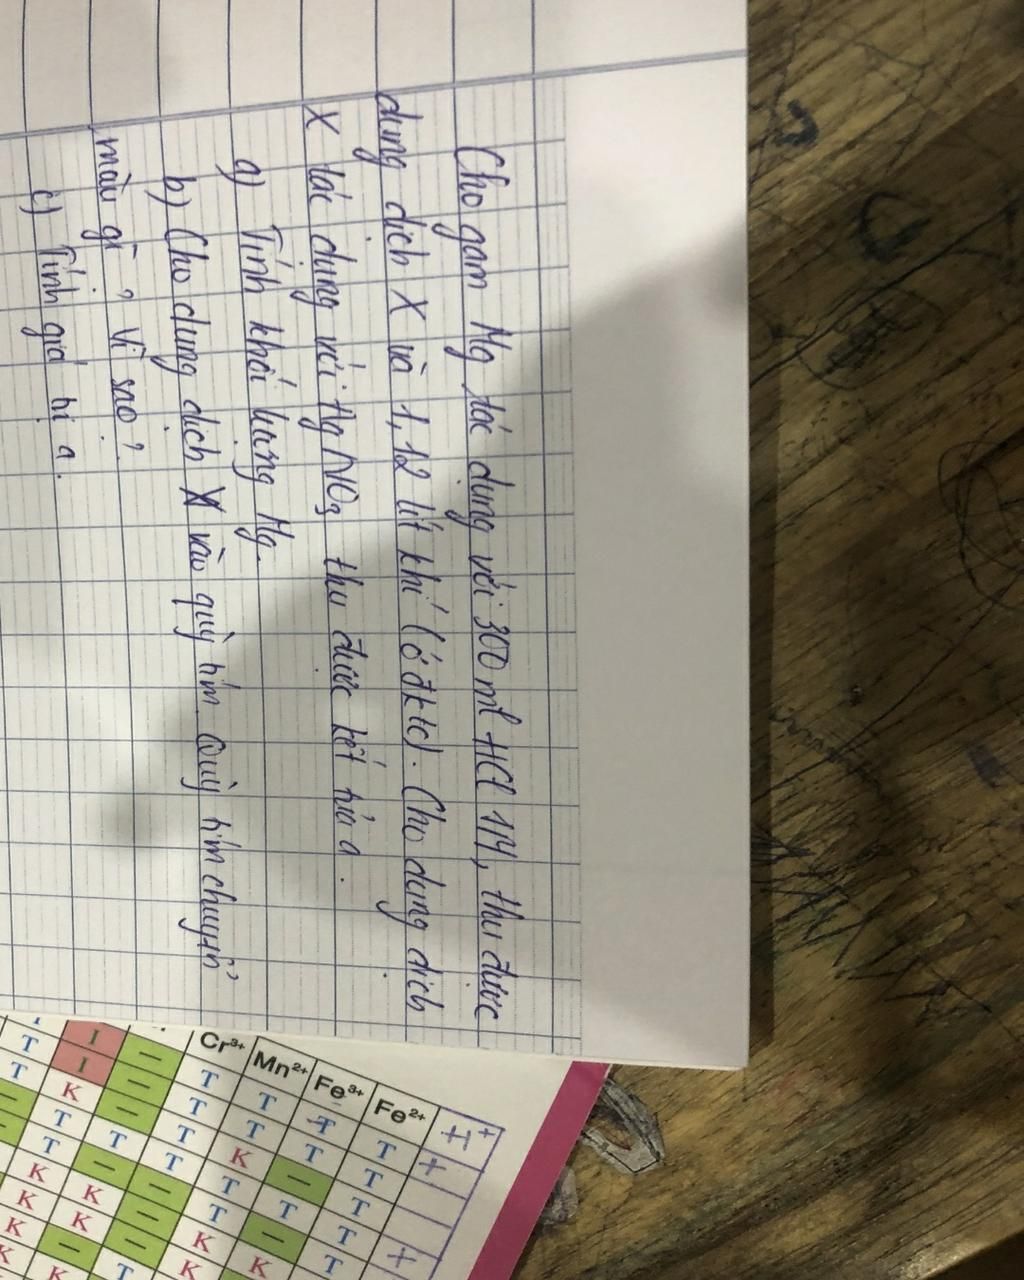 Cho gam Mg tác dụng với 300 ml HCl 1M, thu được
dung dịch X và 1,12 lít khí (ở đktc). Cho dung dịch
X tác dụng với AgNO3 thu được kết tủa a.
a) Tính khối lượng Mg.
b) Cho dung dịch X vào quỳ tím. Quỳ tím chuyển
màu gì? Vì sao?
c) Tính giá trị a.
Fe2+ T T T T T
Fe3+ T T – T – K
Mn2+ T T K T T K
Cr3+ T T T T – –